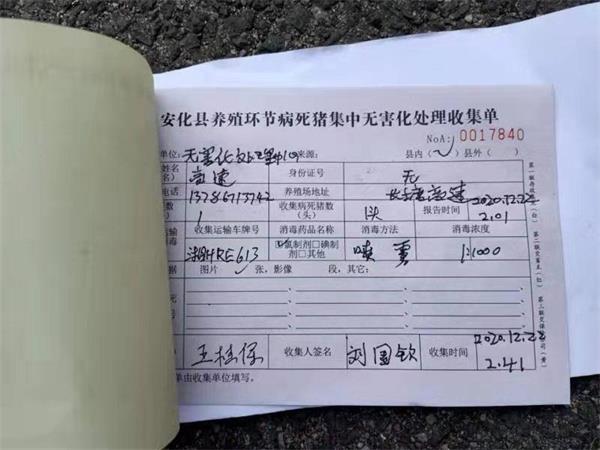 安化县养殖环节病死猪集中无害化处理收集单
NoA: 0017840
单位: 无害化处理中心 来源: 县内(✓) 县外( )
姓名 高速 身份证号 无
电话 13786713742 养殖场地址 高速 报告时间 2020.12.22 2:01
数 1 收集病死猪数(头) 1头
运输 收集运输车牌号 消毒药品名称 消毒方法 消毒浓度
消毒 湘HRE613 ☑氯制剂□碘制剂□其他 喷雾 1:1000
据 图片 ✓ 张,影像 段,其它:
死
号
王桂保 收集人签名 刘国钦 收集时间 2020.12.22 2:41
单由收集单位填写。
第一联存根(白) 第二联交畜主(红) 第三联交保险公司(黄)